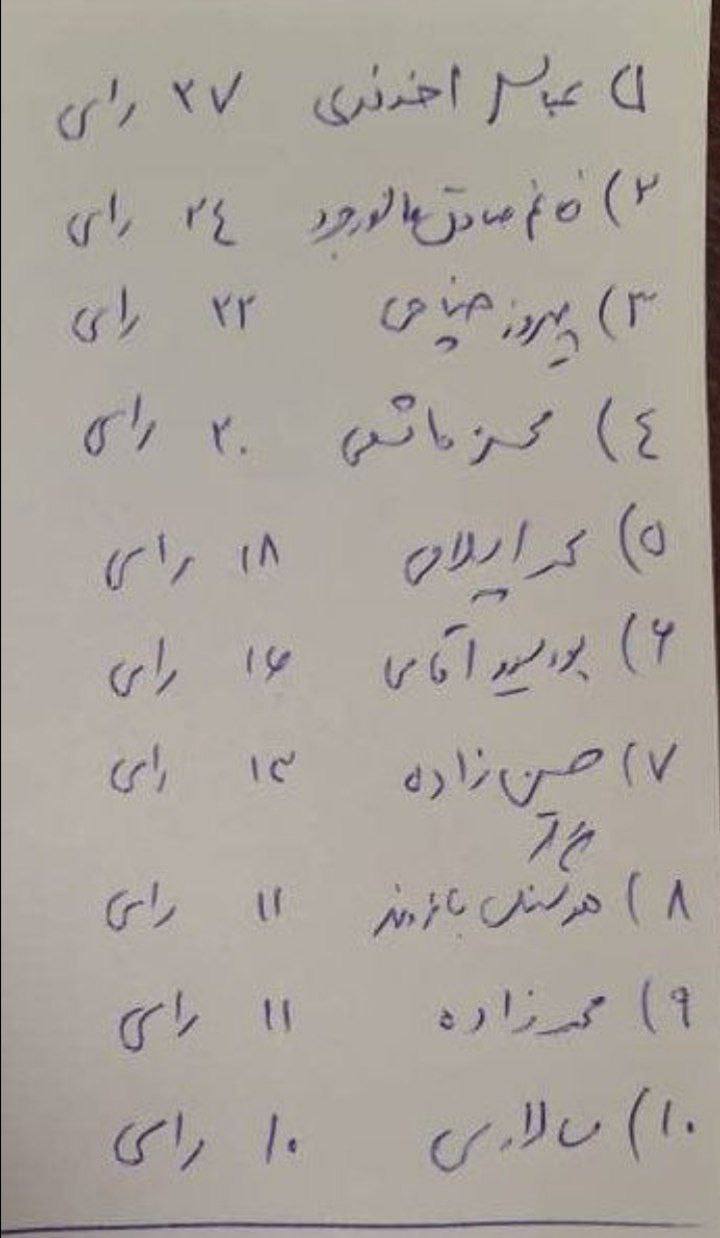 ۱) عباس آخوندی ۲۷ رای
۲) خانم صادق مالواجرد ۲۴ رای
۳) پیروز حناچی ۲۲ رای
۴) محسن هاشمی ۲۰ رای
۵) محمد ایلام ۱۸ رای
۶) پورسید آقایی ۱۶ رای
۷) حسن زاده ۱۳ رای
۸) هوشنگ بازوند ۱۱ رای
۹) محمدزاده ۱۱ رای
۱۰) سالاری ۱۰ رای